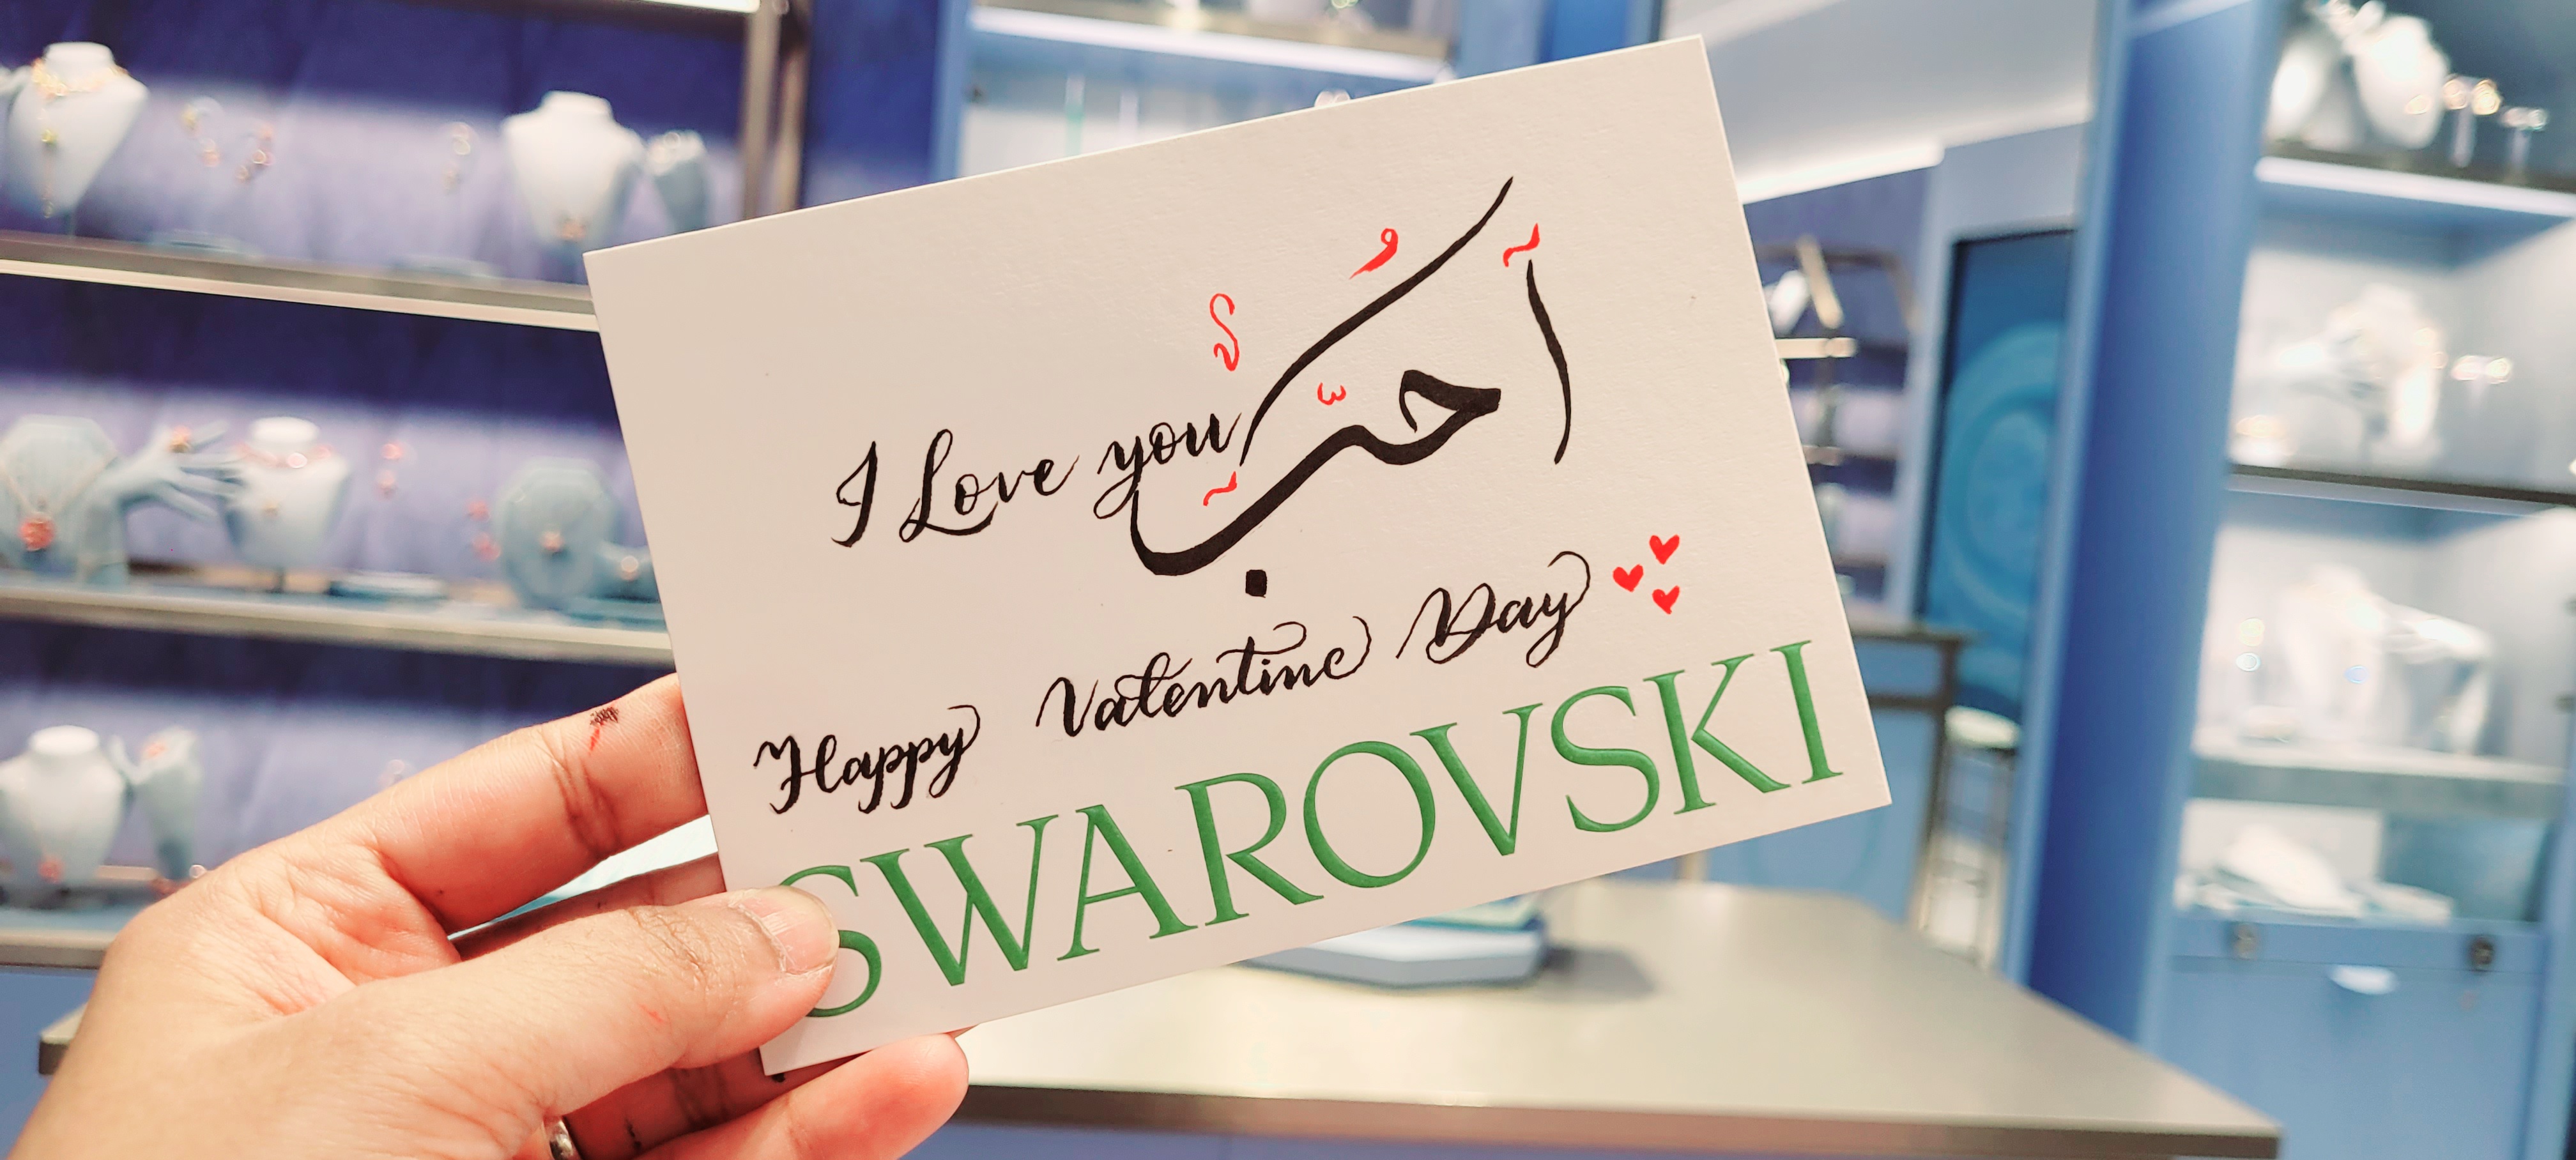 I Love you أحبّك
Happy Valentine Day
SWAROVSKI